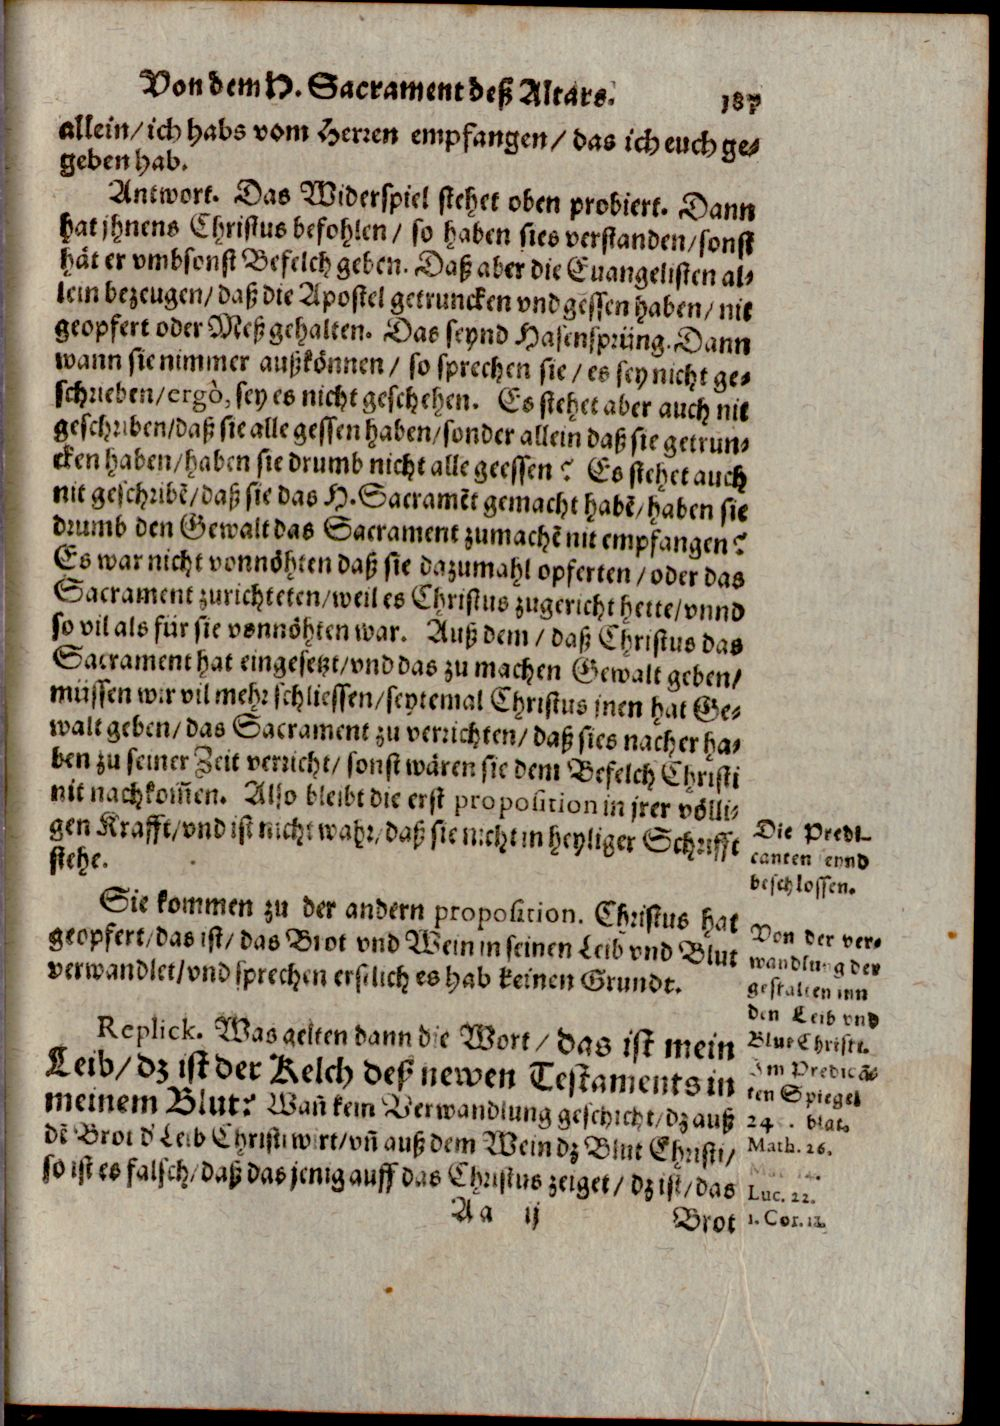 Von dem H. Sacrament deß Altars. 187
allein/ ich habs vom Herren empfangen/ das ich euch ge-
geben hab.
Antwort. Das Widerspiel stehet oben probiert. Dann
hat jhnens Christus befohlen/ so haben sies verstanden/ sonst
hät er vmbsonst Befelch geben. Daß aber die Euangelisten al-
lein bezeugen/ daß die Apostel getruncken vnd gessen haben/ nit
geopfert oder Meß gehalten. Das seynd Hasensprüng. Dann
wann sie nimmer außkönnen/ so sprechen sie/ es sey nicht ge-
schrieben/ ergò, sey es nicht geschehen. Es stehet aber auch nit
geschriben/ daß sie alle gessen haben/ sonder allein daß sie getrun-
cken haben/ haben sie drumb nicht alle geessen? Es stehet auch
nit geschribẽ/ daß sie das H. Sacramẽt gemacht habẽ/ haben sie
drumb den Gewalt das Sacrament zumachẽ nit empfangen?
Es war nicht vonnöhten daß sie dazumahl opferten/ oder das
Sacrament zurichteten/ weil es Christus zugericht hette/ vnnd
so vil als für sie vonnöhten war. Auß dem/ daß Christus das
Sacrament hat eingesetzt/ vnd das zu machen Gewalt geben/
müssen wir vil mehr schliessen/ seytemal Christus jnen hat Ge-
walt geben/ das Sacrament zu verrichten/ daß sies nacher ha-
ben zu seiner Zeit verricht/ sonst wären sie dem Befelch Christi
nit nachkom̃en. Also bleibt die erst proposition in jrer völli-
gen Krafft/ vnd ist nicht wahr/ daß sie nicht in heyliger Schrifft
stehe.
Die Predi-
canten seynd
beschlossen.
Sie kommen zu der andern proposition. Christus hat
geopfert/ das ist/ das Brot vnd Wein in seinen Leib vnd Blut
verwandlet/ vnd sprechen erstlich es hab keinen Grundt.
Von der ver-
wandlung der
gestalten inn
den Leib vnd
Blut Christi.
Replick. Was gelten dann die Wort/ das ist mein
Leib/ dz ist der Kelch deß newen Testaments in
meinem Blut? Wañ kein Verwandlung geschicht/ dz auß
dẽ Brot d' Leib Christi wirt/ vñ auß dem Wein dz Blut Christi/
so ist es falsch/ daß das jenig auff das Christus zeiget/ dz ist/ das
Im Predicã-
ten Spiegel
24 . blat.
Math. 26.
Luc. 22.
1. Cor. 11.
Aa ij Brot